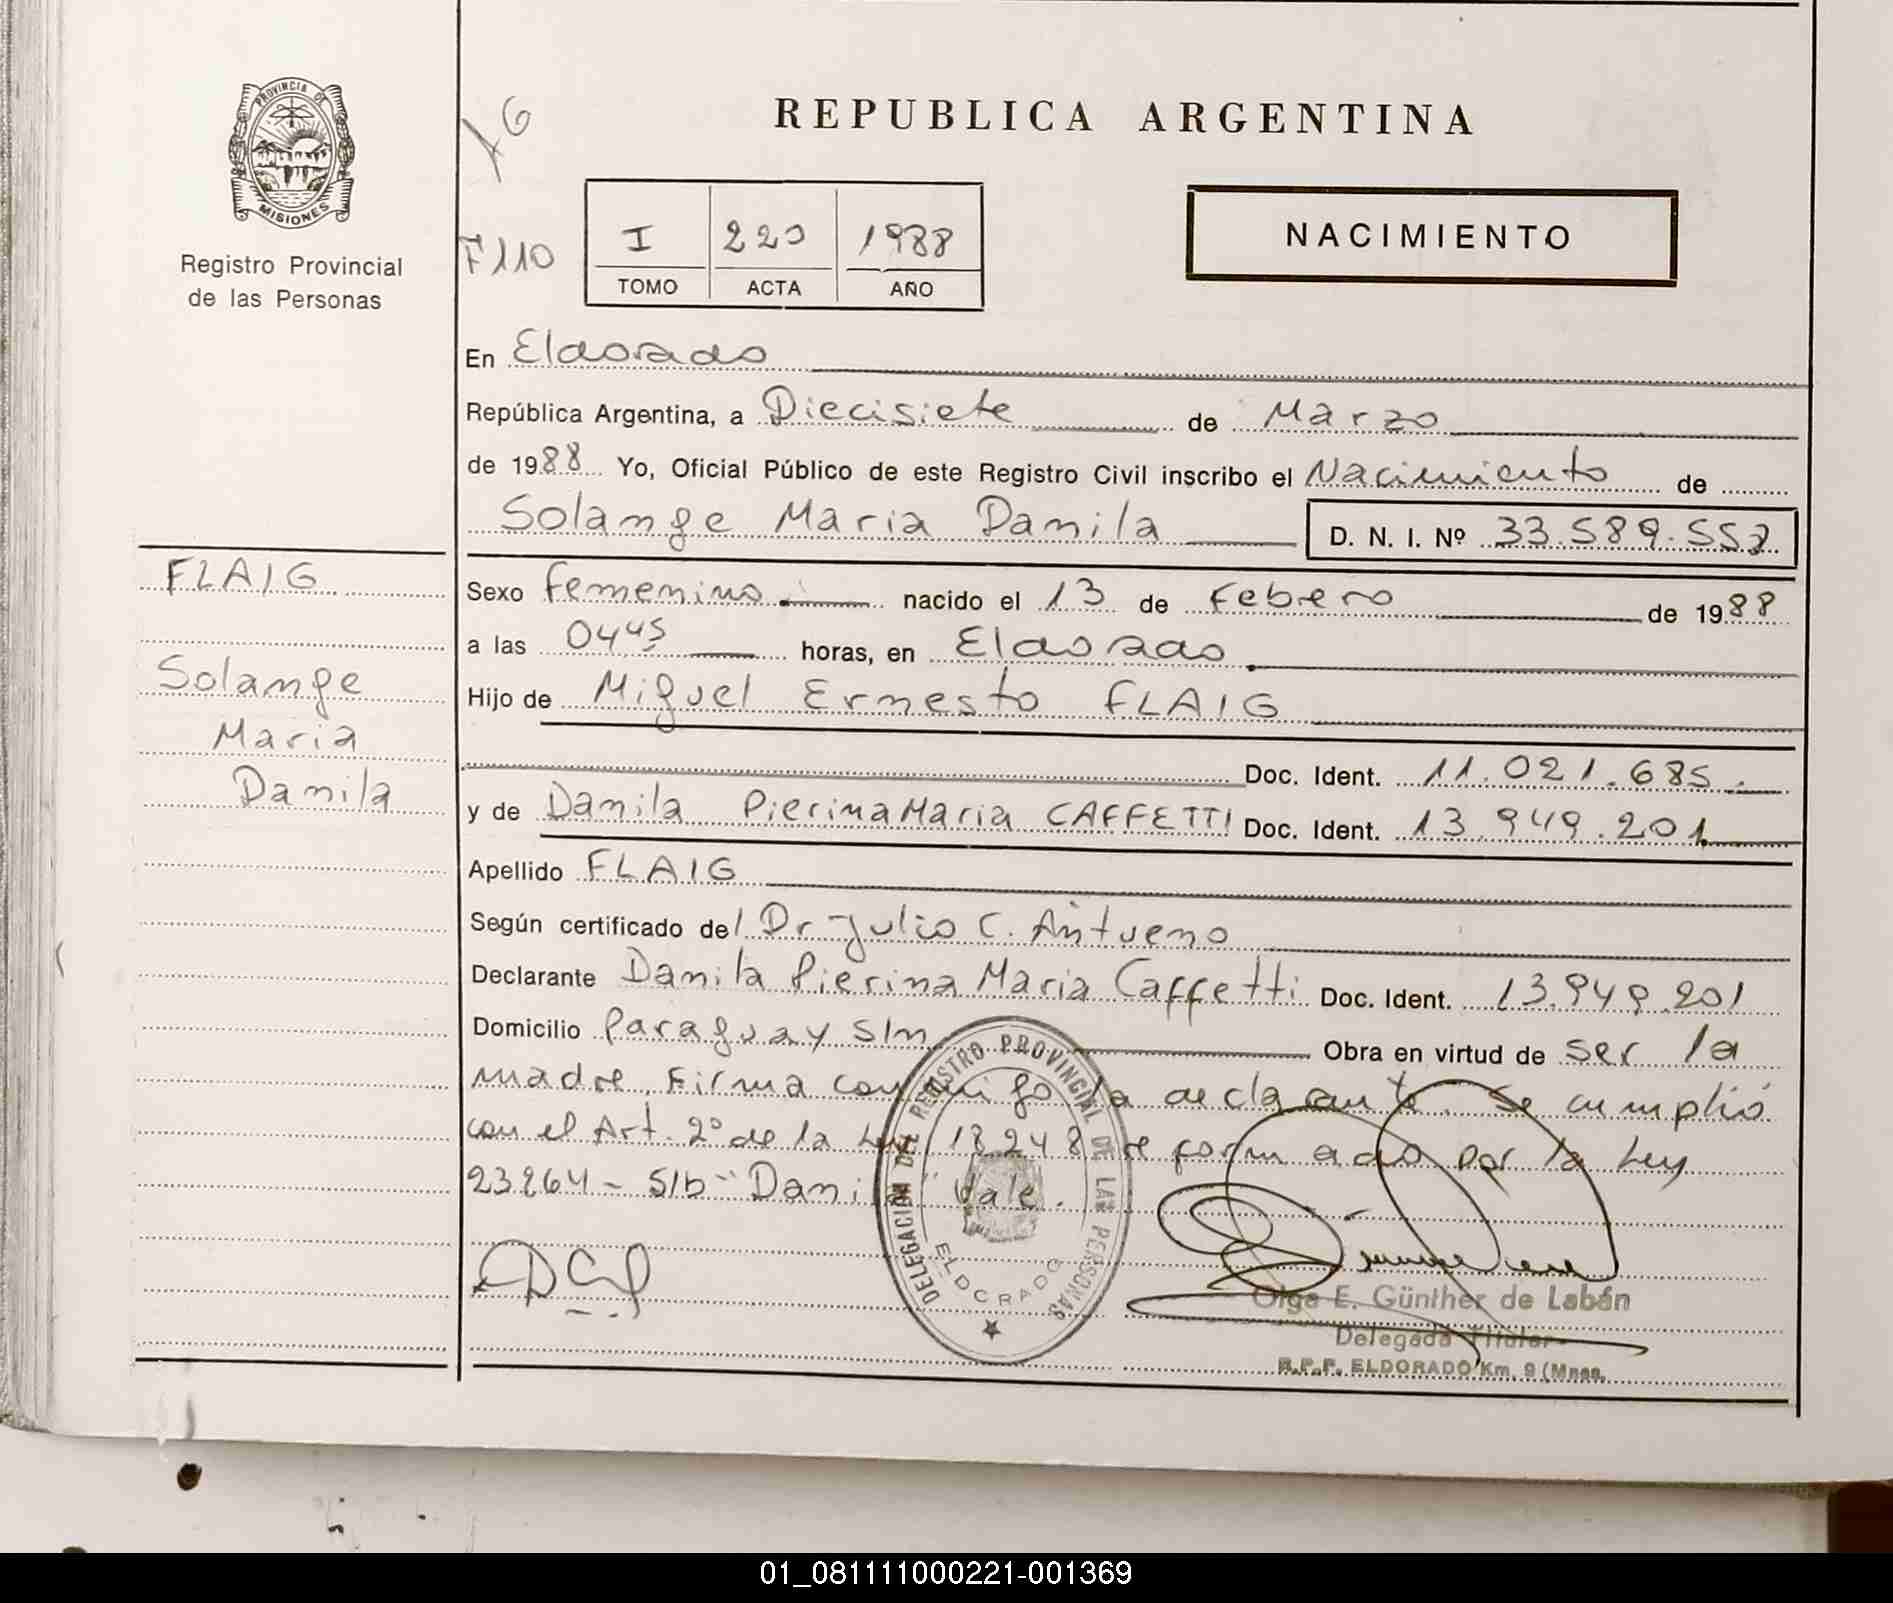 PROVINCIA DE
MISIONES
Registro Provincial
de las Personas
FLAIG
Solange
Maria
Danila
REPUBLICA ARGENTINA
F110
I 220 1988
TOMO ACTA AÑO
NACIMIENTO
En Eldorado
República Argentina, a Diecisiete de Marzo
de 1988 Yo, Oficial Público de este Registro Civil inscribo el Nacimiento de
Solange Maria Danila D. N. I. Nº 33.589.557
Sexo Femenino nacido el 13 de Febrero de 1988
a las 0445 horas, en Eldorado
Hijo de Miguel Ernesto FLAIG
Doc. Ident. 11.021.685
y de Danila Pierina Maria CAFFETTI Doc. Ident. 13.949.201
Apellido FLAIG
Según certificado del Dr Julio C.
Declarante Danila Pierina Maria Caffetti Doc. Ident. 13.949.201
Domicilio Paraguay S/n Obra en virtud de ser la
madre Firma conmigo la declarante. Se cumplió
con el Art. 2º de la Ley 18248 reformado por la Ley
23264 - S/b "Danila" Vale.
DELEGACION DEL REGISTRO PROVINCIAL DE LAS PERSONAS
ELDORADO
Olga E. Günther de Labán
Delegada Titular
R.P.P. ELDORADO Km. 9 (Mnes.
01_081111000221-001369